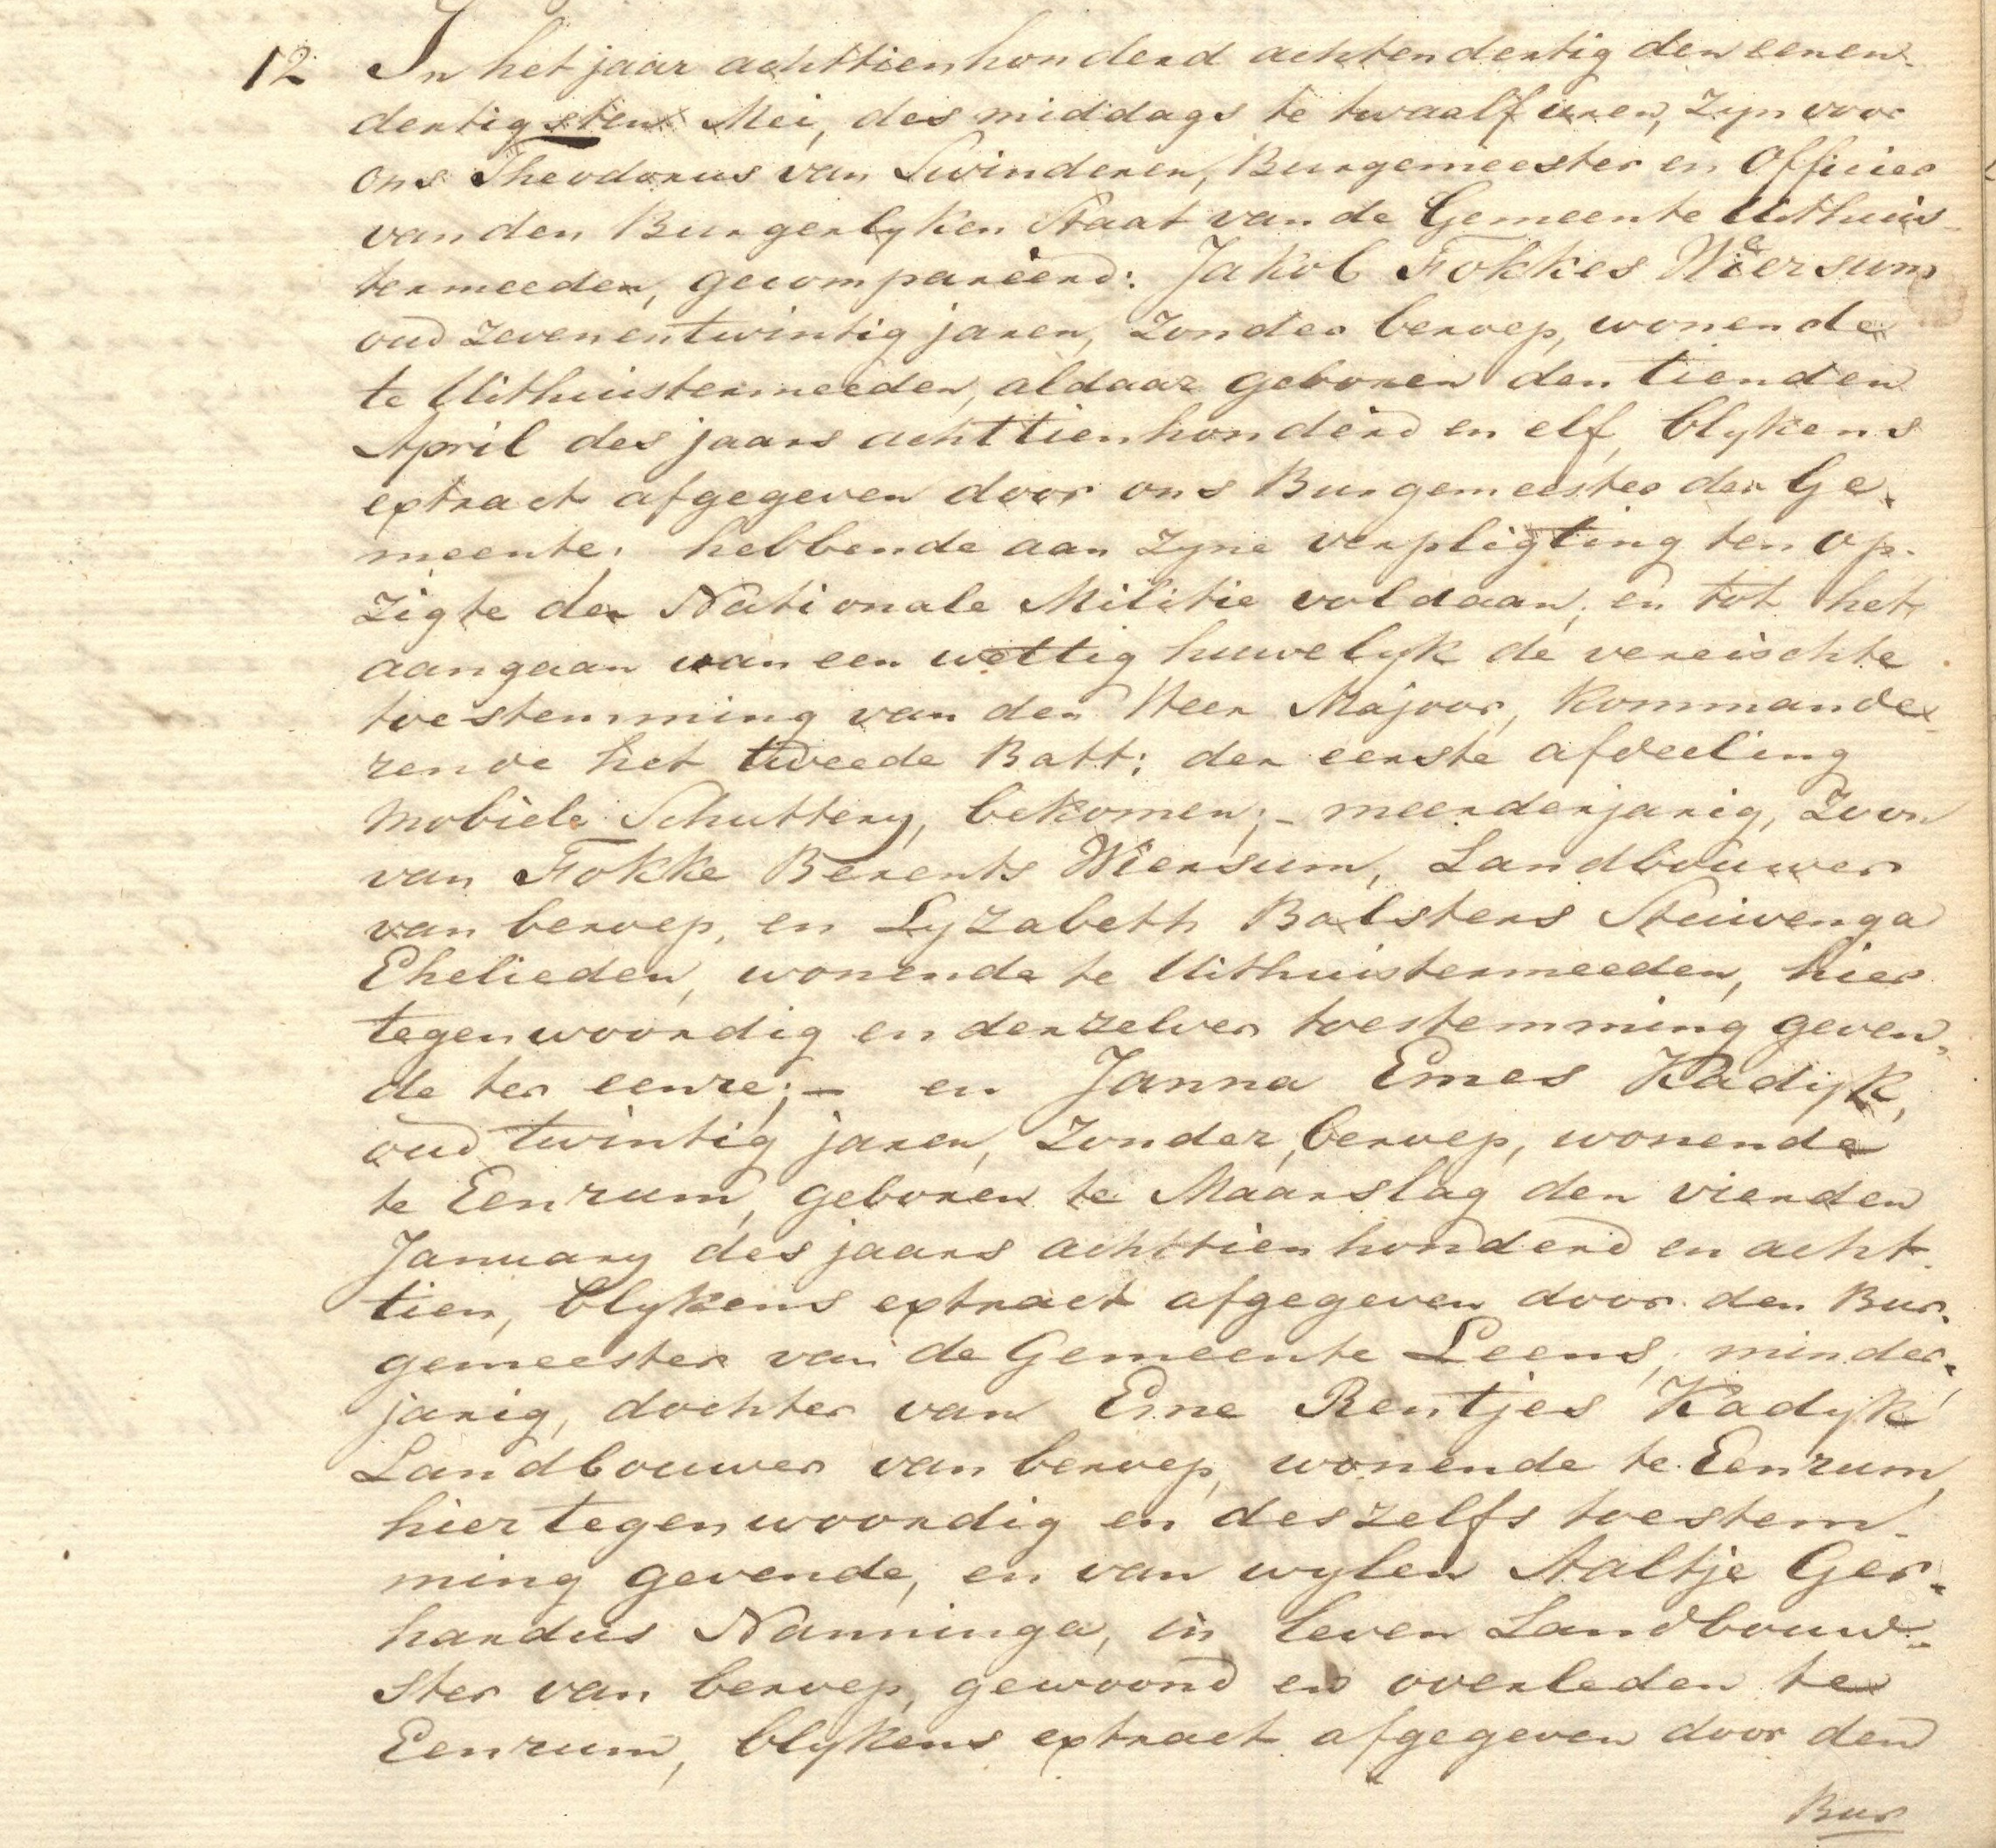 12 In het jaar achttienhonderd achtendertig den eenen-
dertigsten Mei, des middags te twaalf uren, zyn voor
ons Theodorus van Swinderen, Burgemeester en Officier
van den Burgerlyken Staat van de Gemeente Uithuis-
termeeden, gecompareerd: Jakob Fokkes Wiersum
oud zevenentwintig jaren, zonder beroep, wonende
te Uithuistermeeden, aldaar geboren den tienden
April des jaars achttienhonderd en elf, blykens
extract afgegeven door ons Burgemeester der Ge-
meente; hebbende aan zyne verpligting ten op-
zigte der Nationale Militie voldaan, en tot het
aangaan van een wettig huwelyk de vereischte
toestemming van den Heer Majoor, kommande-
rende het tweede Batt: der eerste afdeeling
mobiele Schuttery, bekomen; - meerderjarig, zoon
van Fokke Berents Wiersum, Landbouwer
van beroep, en Lyzabeth Balsters Stuivenga
Ehelieden, wonende te Uithuistermeeden, hier
tegenwoordig en derzelver toestemming geven-
de ter eenre; - en Janna Emes Kadijk,
oud twintig jaren, zonder beroep, wonende
te Eenrum, geboren te Maarslag den vierden
January des jaars achttienhonderd en acht-
tien, blykens extract afgegeven door den Bur-
gemeester van de Gemeente Leens, minder-
jarig, dochter van Eme Rentjes Kadyk
Landbouwer van beroep, wonende te Eenrum,
hier tegenwoordig en deszelfs toestem-
ming gevende, en van wylen Aaltje Ger-
hardus Nanninga, in leven Landbouw-
ster van beroep, gewoond en overleden te
Eenrum, blykens extract afgegeven door den
Bur